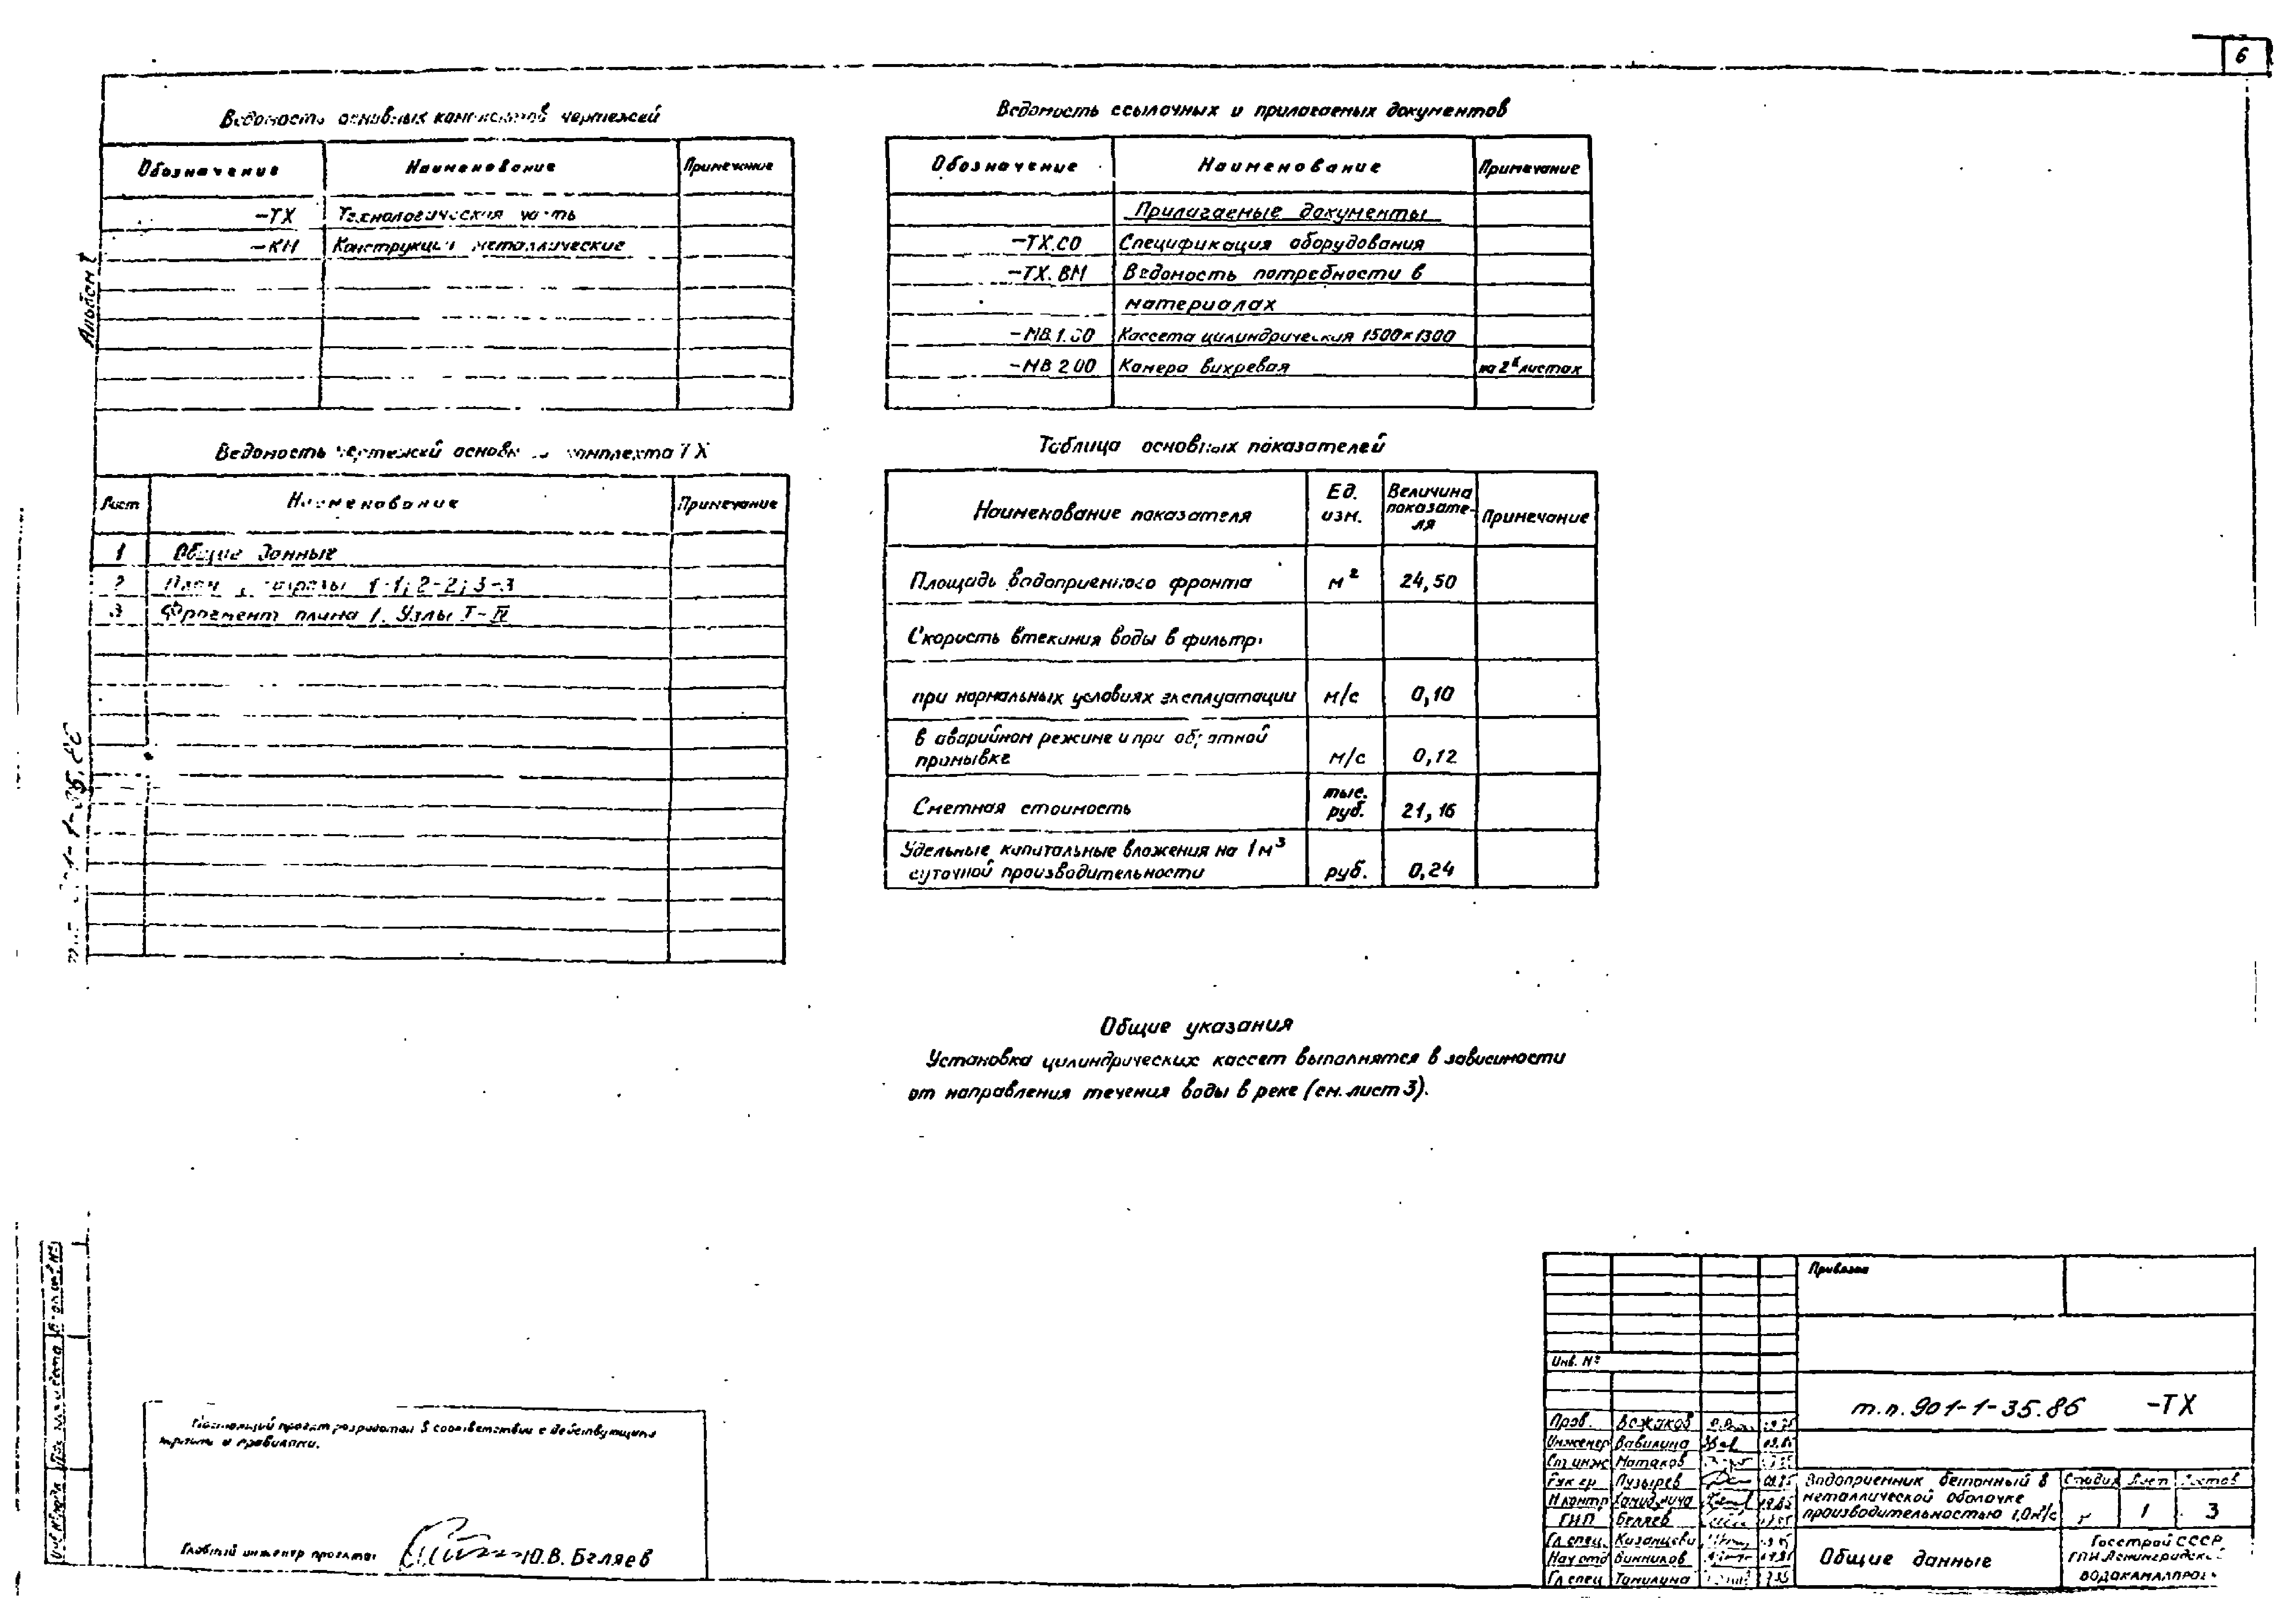 6
Ведомость основных комплектов чертежей
Обозначение Наименование Примечание
-ТХ Технологическая часть
-КМ Конструкции металлические
Альбом I
Ведомость чертежей основного комплекта ТХ
Лист Наименование Примечание
1 Общие данные
2 План, разрезы 1-1; 2-2; 3-3
3 Фрагмент плана 1. Узлы I-IV
Ведомость ссылочных и прилагаемых документов
Обозначение Наименование Примечание
Прилагаемые документы
-ТХ.СО Спецификация оборудования
-ТХ.ВМ Ведомость потребности в
материалах
-МВ 1.00 Кассета цилиндрическая 1500×1300
-МВ 2.00 Камера вихревая на 2х листах
Таблица основных показателей
Наименование показателя Ед. изм. Величина показате-ля Примечание
Площадь водоприемного фронта м² 24,50
Скорость втекания воды в фильтр:
при нормальных условиях эксплуатации м/с 0,10
в аварийном режиме и при обратной
промывке м/с 0,12
Сметная стоимость тыс. руб. 21,16
Удельные капитальные вложения на 1м³
суточной производительности руб. 0,24
Общие указания
Установка цилиндрических кассет выполнятся в зависимости
от направления течения воды в реке (см. лист 3).
Настоящий проект разработан в соответствии с действующими
нормами и правилами.
Главный инженер проекта: Ю.В. Беляев
Привязан
Инв. №
т.п. 901-1-35.86 -ТХ
Пров. Вожаков
Инженер Вавилина
Ст инж Матаков
Рук гр. Пузырев 09.85
Н контр
ГИП Беляев
Гл спец.
Нач отд Винников
Гл спец Томилина
Водоприемник бетонный в
металлической оболочке
производительностью 1,0м³/с
Стадия Лист Листов
1 3
Общие данные
Госстрой СССР
ГПИ Ленинградский
ВОДОКАНАЛПРОЕКТ